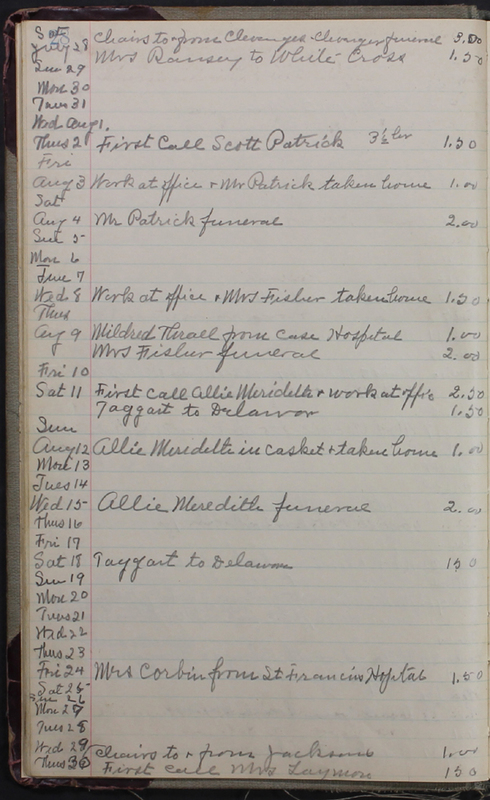 Sat
July 28 Chairs to & from Clevenger funeral 3.00
Mrs Ramsey to White Cross 1.50
Sun 29
Mon 30
Tues 31
Wed Aug 1.
Thurs 2 First Call Scott Patrick 3½ hr 1.50
Fri
Aug 3 Work at office & Mr Patrick taken home 1.00
Sat
Aug 4 Mr Patrick funeral 2.00
Sun 5
Mon 6
Tue 7
Wed 8 Work at office & Mrs Fisher taken home 1.50
Thus
Aug 9 Mildred Thrall from Case Hospital 1.00
Mrs Fisher funeral 2.00
Fri 10
Sat 11 First Call Allie Meridith & work at offic 2.50
Taggart to Delawor 1.50
Sun
Aug 12 Allie Meridith in casket & taken home 1.00
Mon 13
Tues 14
Wed 15 Allie Meredith funeral 2.00
Thus 16
Fri 17
Sat 18 Taggart to Delawar 150
Sun 19
Mon 20
Tues 21
Wed 22
Thus 23
Fri 24 Mrs Corbin from St Francis Hoptal 1.50
Sat 25
Sun 26
Mon 27
Tues 28
Wed 29 Chairs to & from Jacksons 1.00
Thus 30 First Call Mrs Laymon 150